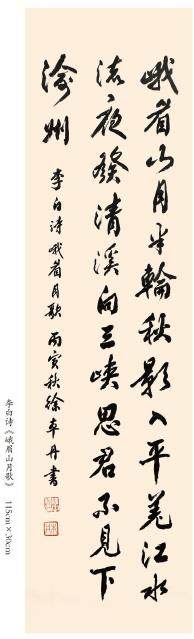 峨眉山月半輪秋影入平羌江水
流夜發清溪向三峽思君不見下
渝州
李白诗峨眉月歌 丙寅秋徐丹書
李白诗《峨眉山月歌》 115cm×30cm